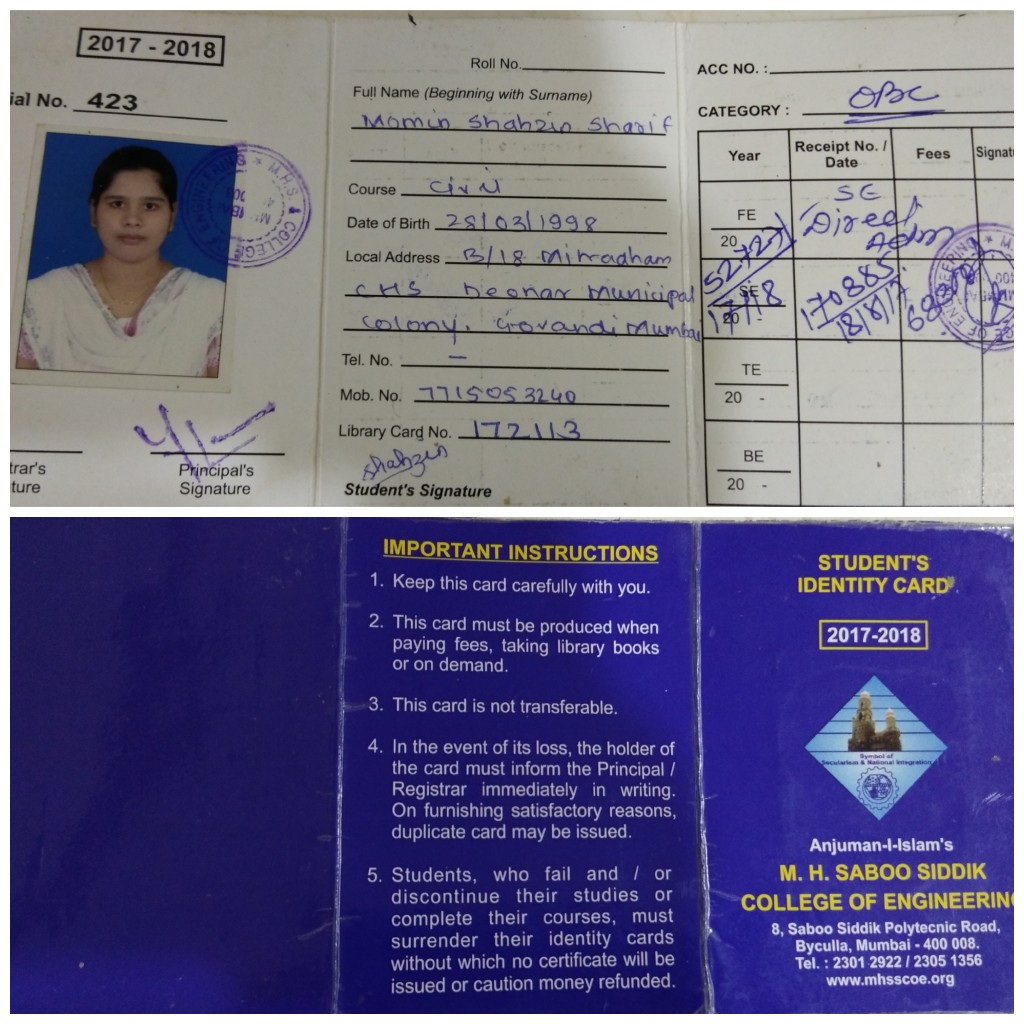 2017 - 2018
ial No. 423
M.H.S.
COLLEGE
Principal's
Signature
trar's
ture
Roll No.
Full Name (Beginning with Surname)
Momin Shahzin Sharif
Course Civil
Date of Birth 28/03/1998
Local Address B/18 Mitradham
CHS Deonar Municipal
Colony, Govandi Mumbai
Tel. No. –
Mob. No. 7715053240
Library Card No. 172113
Shahzin
Student's Signature
ACC NO. :
CATEGORY : OBC
Year Receipt No. / Date Fees Signatu
FE
20
SE
Direct
Admn
SE
20 -
170885
18/8/17
TE
20 -
BE
20 -
IMPORTANT INSTRUCTIONS
1. Keep this card carefully with you.
2. This card must be produced when
paying fees, taking library books
or on demand.
3. This card is not transferable.
4. In the event of its loss, the holder of
the card must inform the Principal /
Registrar immediately in writing.
On furnishing satisfactory reasons,
duplicate card may be issued.
5. Students, who fail and / or
discontinue their studies or
complete their courses, must
surrender their identity cards
without which no certificate will be
issued or caution money refunded.
STUDENT'S
IDENTITY CARD
2017-2018
Symbol of
Secularism & National Integration
Anjuman-I-Islam's
M. H. SABOO SIDDIK
COLLEGE OF ENGINEERING
8, Saboo Siddik Polytecnic Road,
Byculla, Mumbai - 400 008.
Tel. : 2301 2922 / 2305 1356
www.mhsscoe.org